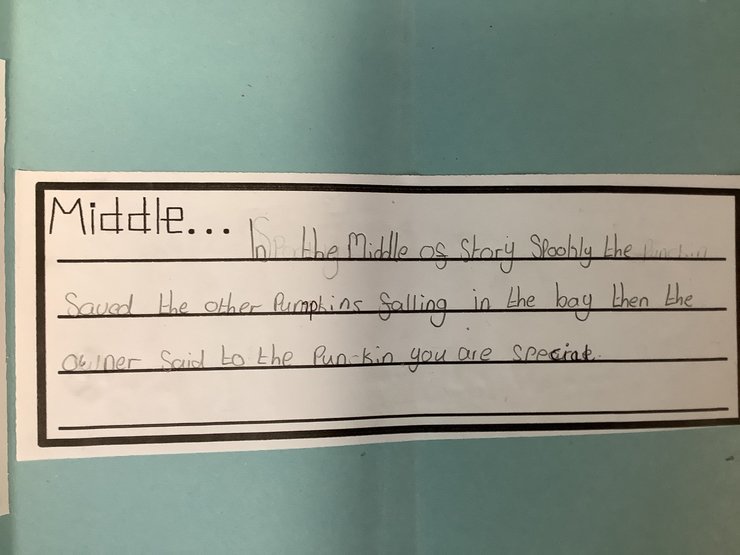 Middle...
In the Middle of Story Spoohly the
Saved the other Pumpkins falling in the bay then the
owner Said to the Pun-kin you are